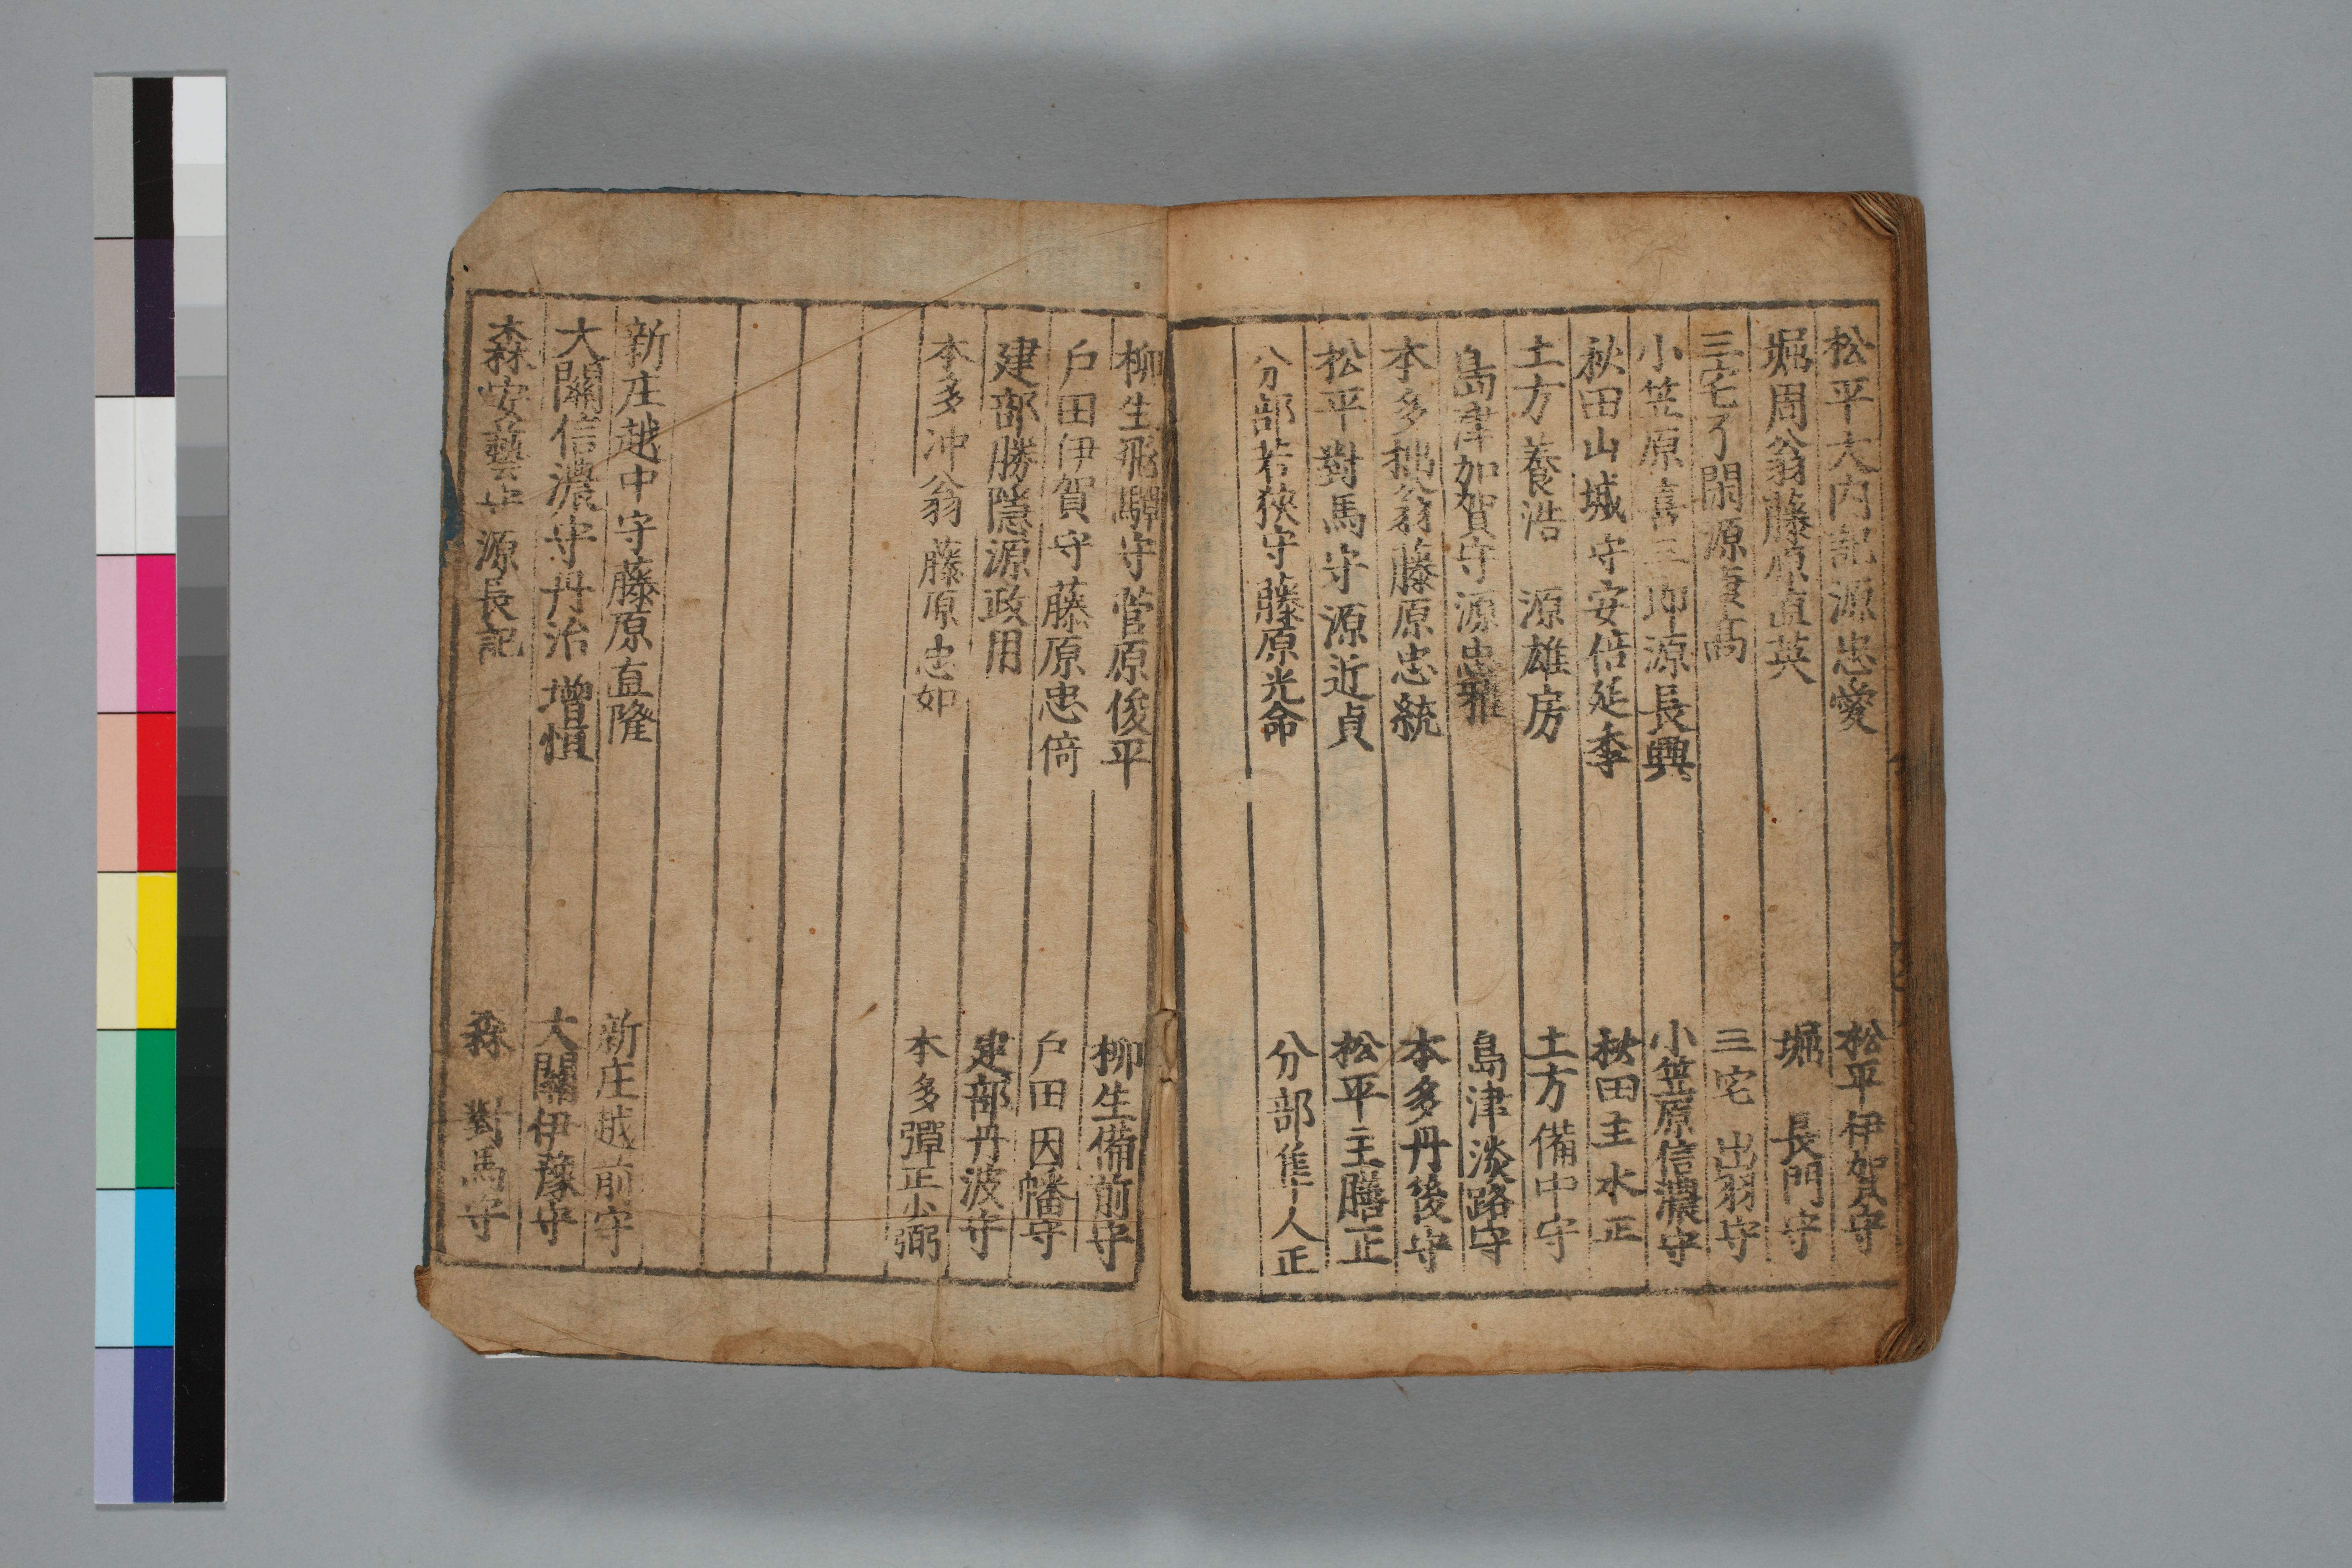 松平大内記源忠愛　松平伊賀守
堀周翁藤原直英　堀　長門守
三宅了閑源康高　三宅　出羽守
小笠原喜三郎源長興　小笠原信濃守
秋田山城守安倍延季　秋田主水正
土方養浩　源雄房　土方備中守
島津加賀守源忠雅　島津淡路守
本多拙翁藤原忠統　本多丹後守
松平對馬守源近貞　松平主膳正
分部若狹守藤原光命　分部隼人正
柳生飛騨守菅原俊平　柳生備前守
戸田伊賀守藤原忠倚　戸田因幡守
建部勝隱源政用　建部丹波守
本多冲翁　藤原忠如　本多彈正少弼
新庄越中守藤原直隆　新庄越前守
大關信濃守丹治　増恒　大關伊豫守
森安藝守源長記　森　對馬守